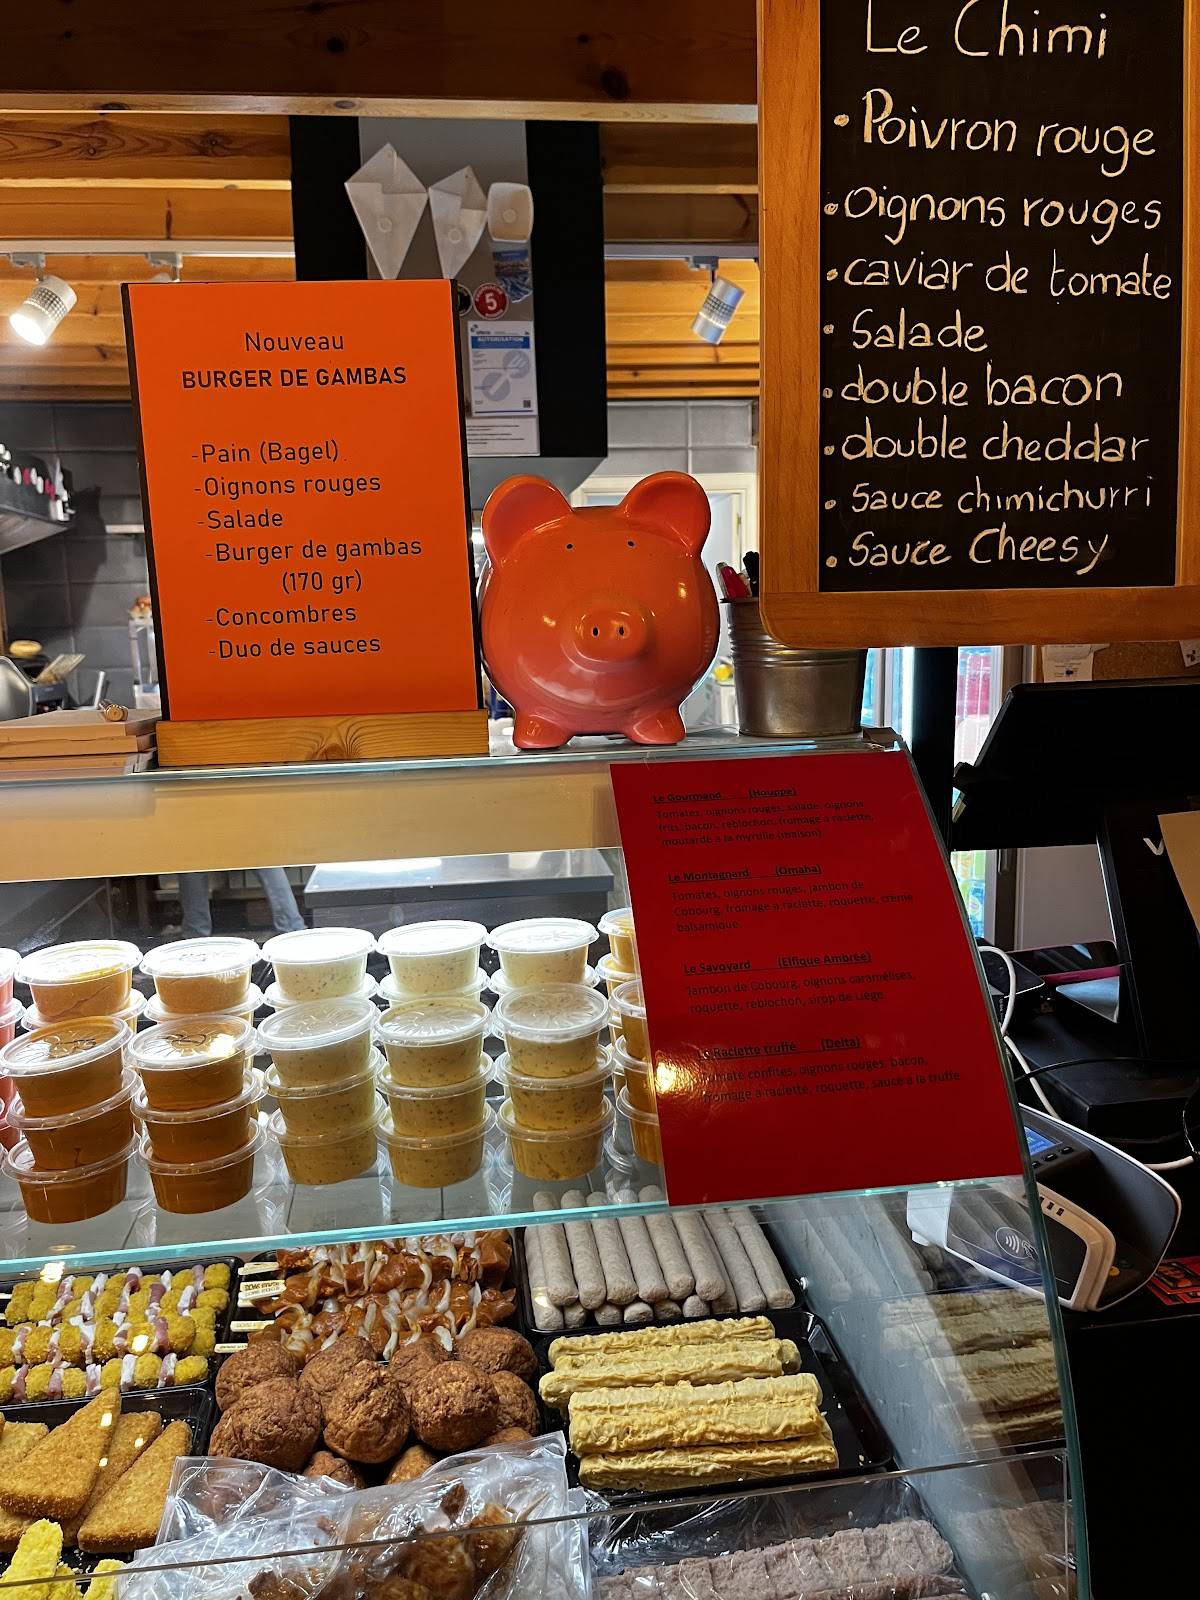 Le Chimi
• Poivron rouge
• Oignons rouges
• caviar de tomate
• Salade
• double bacon
• double cheddar
• Sauce chimichurri
• Sauce Cheesy
Nouveau
BURGER DE GAMBAS
-Pain (Bagel)
-Oignons rouges
-Salade
-Burger de gambas
(170 gr)
-Concombres
-Duo de sauces
5
AUTORISATION
Le Gourmand (Houppe)
Tomates, oignons rouges, salade, oignons
frits, bacon, reblochon, fromage a raclette,
moutarde a la myrtille (maison)
Le Montagnard (Omaha)
Tomates, oignons rouges, jambon de
Cobourg, fromage a raclette, roquette, crème
balsamique.
Le Savoyard (Elfique Ambrée)
Jambon de Cobourg, oignons caramélises,
roquette, reblochon, sirop de Liège
Le Raclette truffé (Delta)
Tomate confites, oignons rouges, bacon,
fromage a raclette, roquette, sauce a la truffe